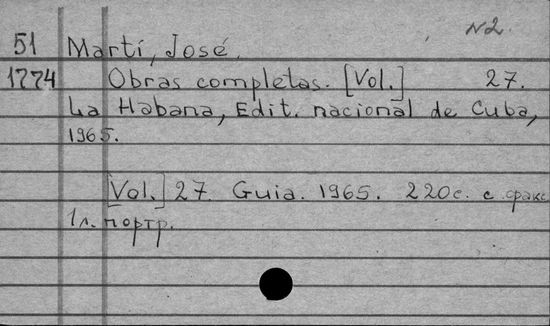 N2.
51 Martí, José.
1774 Obras completas. [Vol.] 27.
La Habana, Edit. nacional de Cuba,
1965.
[Vol.] 27. Guia. 1965. 220с. с факс
1л. портр.